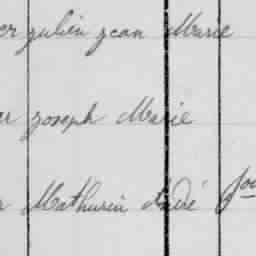 er Julien Jean Marie
er Joseph Marie
Mathurin André Jou